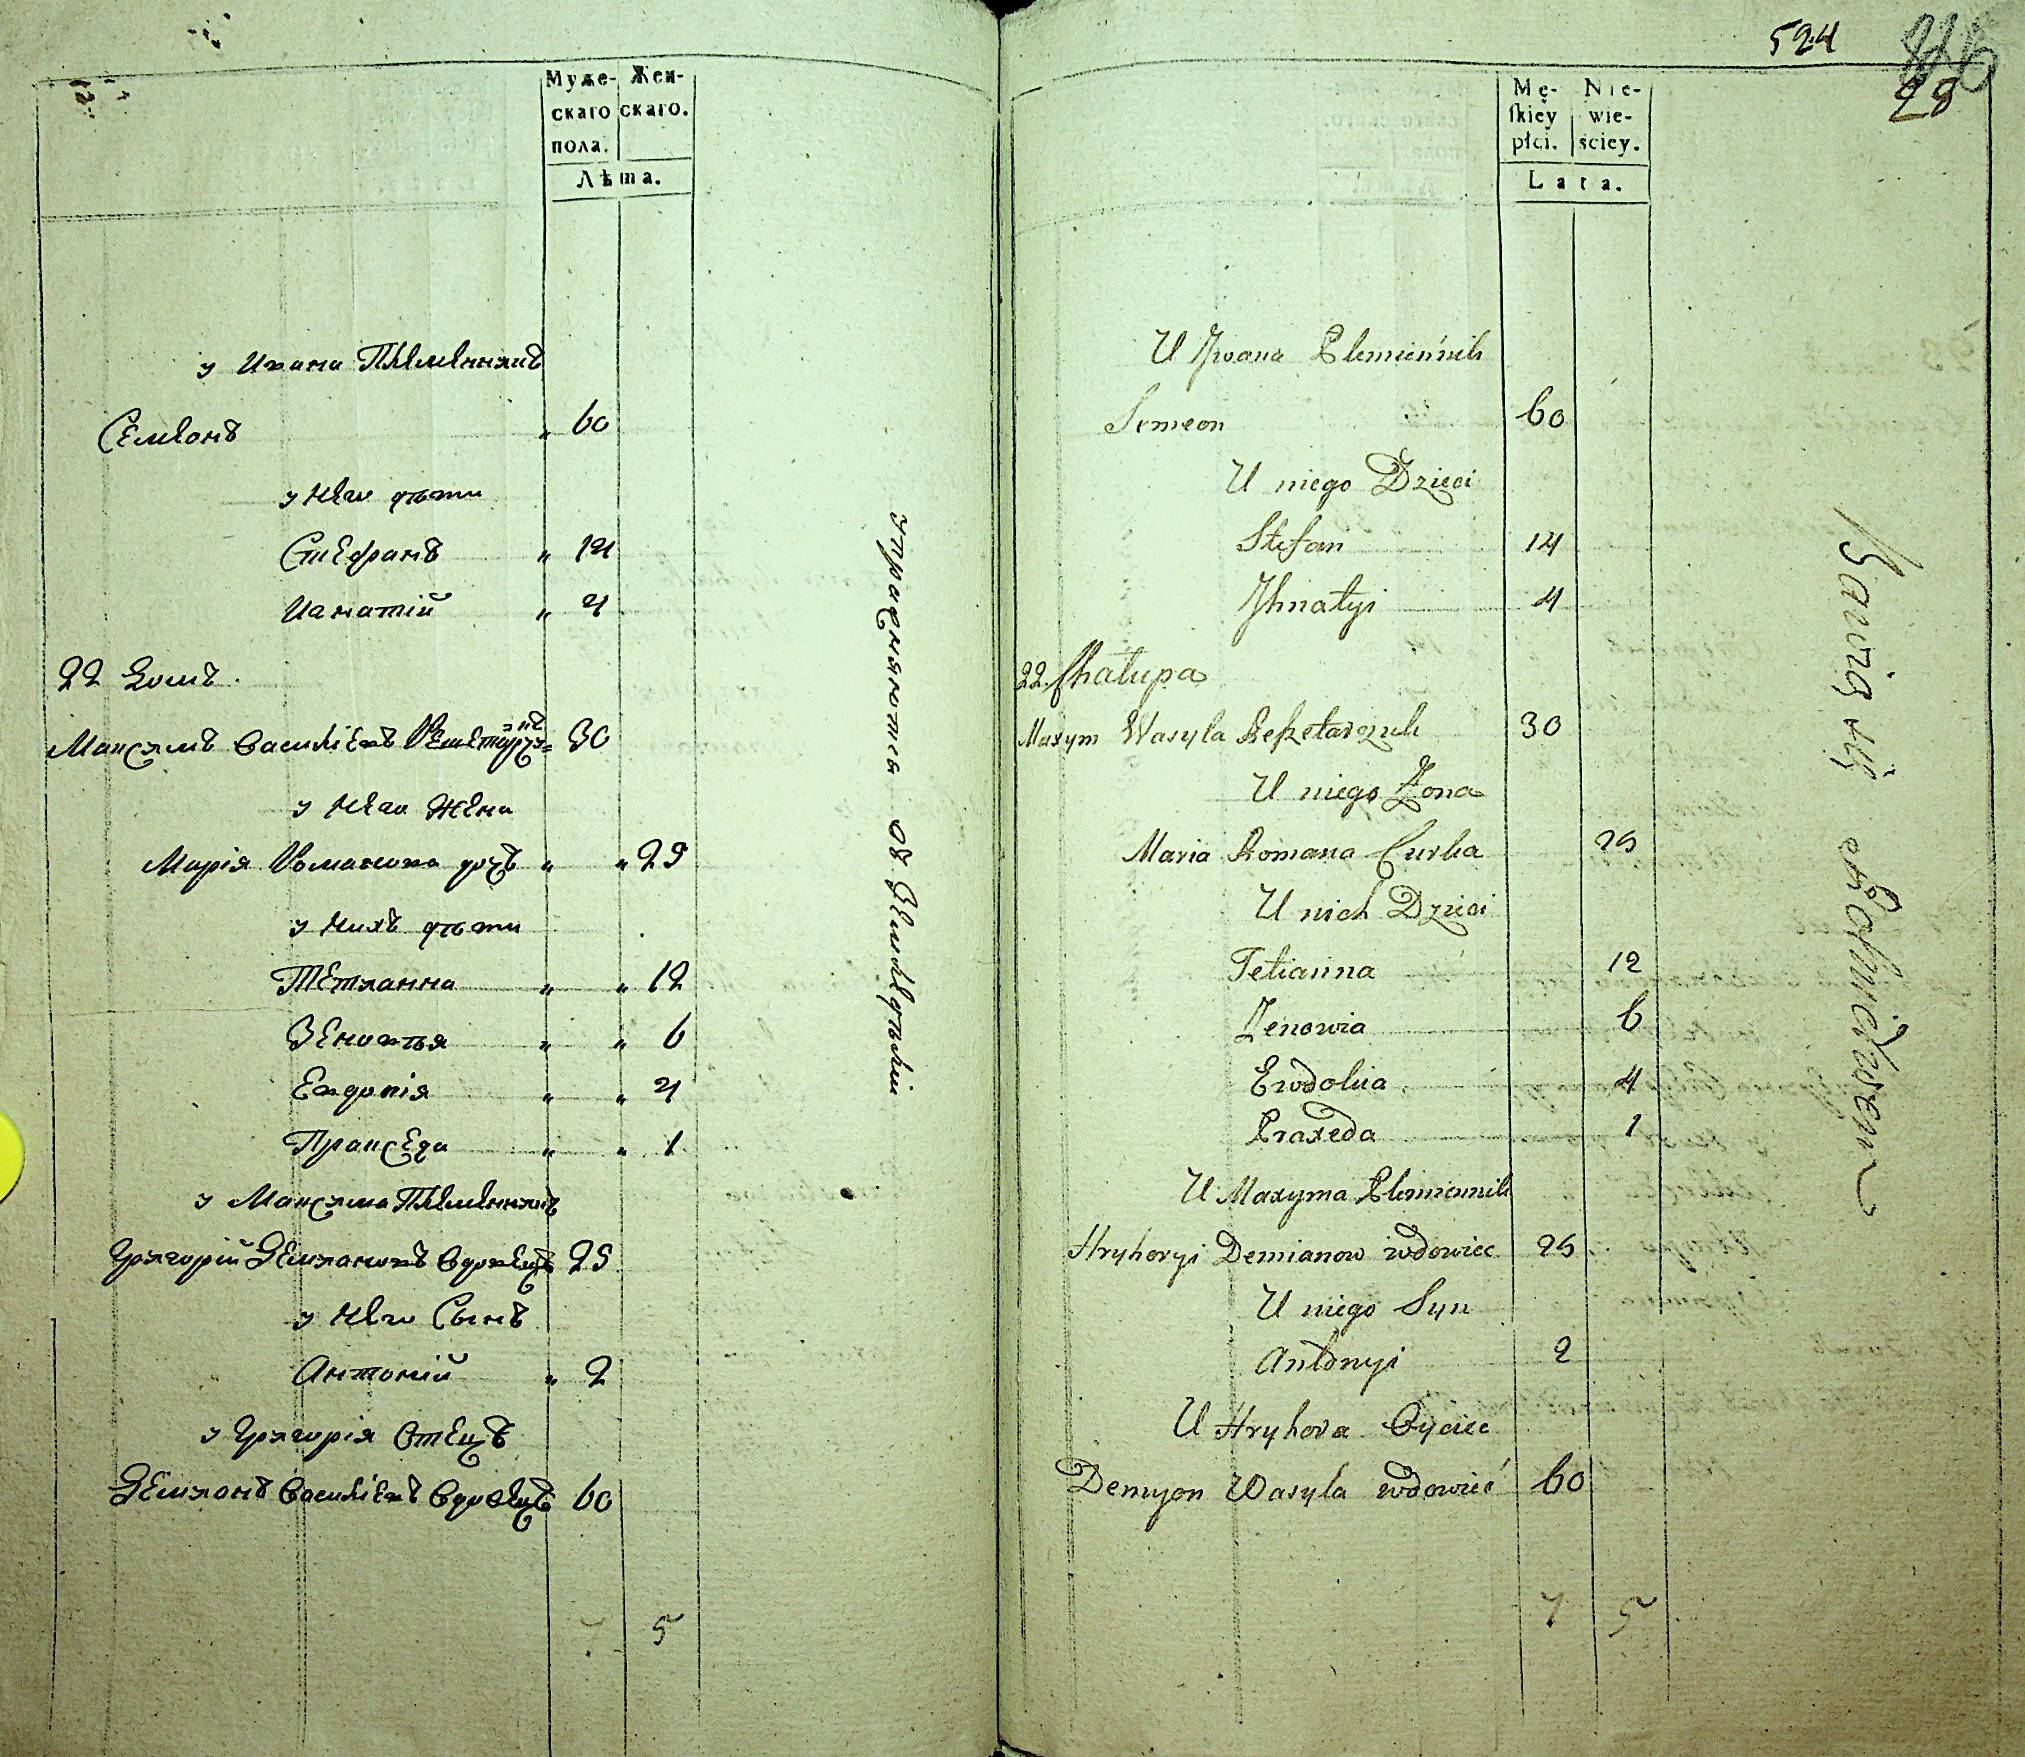 Муже-
скаго
пола.
Жен-
скаго.
Лѣта.
у Ивана Племянникъ
Семіонъ " 60
у него дѣти
Стефанъ " 14
Игнатій " 4
22 Домъ.
Максимъ Василіевъ Решетарчукъ 30
у него жена
Марія Романова дочь " " 25
у нихъ дѣти
Тетианна " " 12
Зеновѣя " " 6
Евдокія " " 4
Пракседа " " 1
у Максима Племянникъ
Григорій Демиановъ вдовецъ 25
у него Сынъ
Антоній " 2
у Григорія Отецъ
Демианъ Василіевъ вдовецъ 60
7 5
упражняются въ Земледѣліи
524
28
Mę-
skiey
płci.
Nie-
wie-
ściey.
Lata.
U Jwana Plemiennik
Semeon 60
U niego Dzieci
Stefan 14
Jhnatyi 4
22. Chałupa
Maxym Wasyla Reszetarczuk 30
U niego Żona
Maria Romana Curka 25
U nich Dzieci
Tetianna 12
Zenowia 6
Ewdokia 4
Praxeda 1
U Maxyma Plemiennik
Hryhoryi Demianow wdowiec 25
U niego Syn
Antonyi 2
U Hryhora Oyciec
Demyon Wasyla wdowieć 60
7 5
Bawią się Rolnictwem